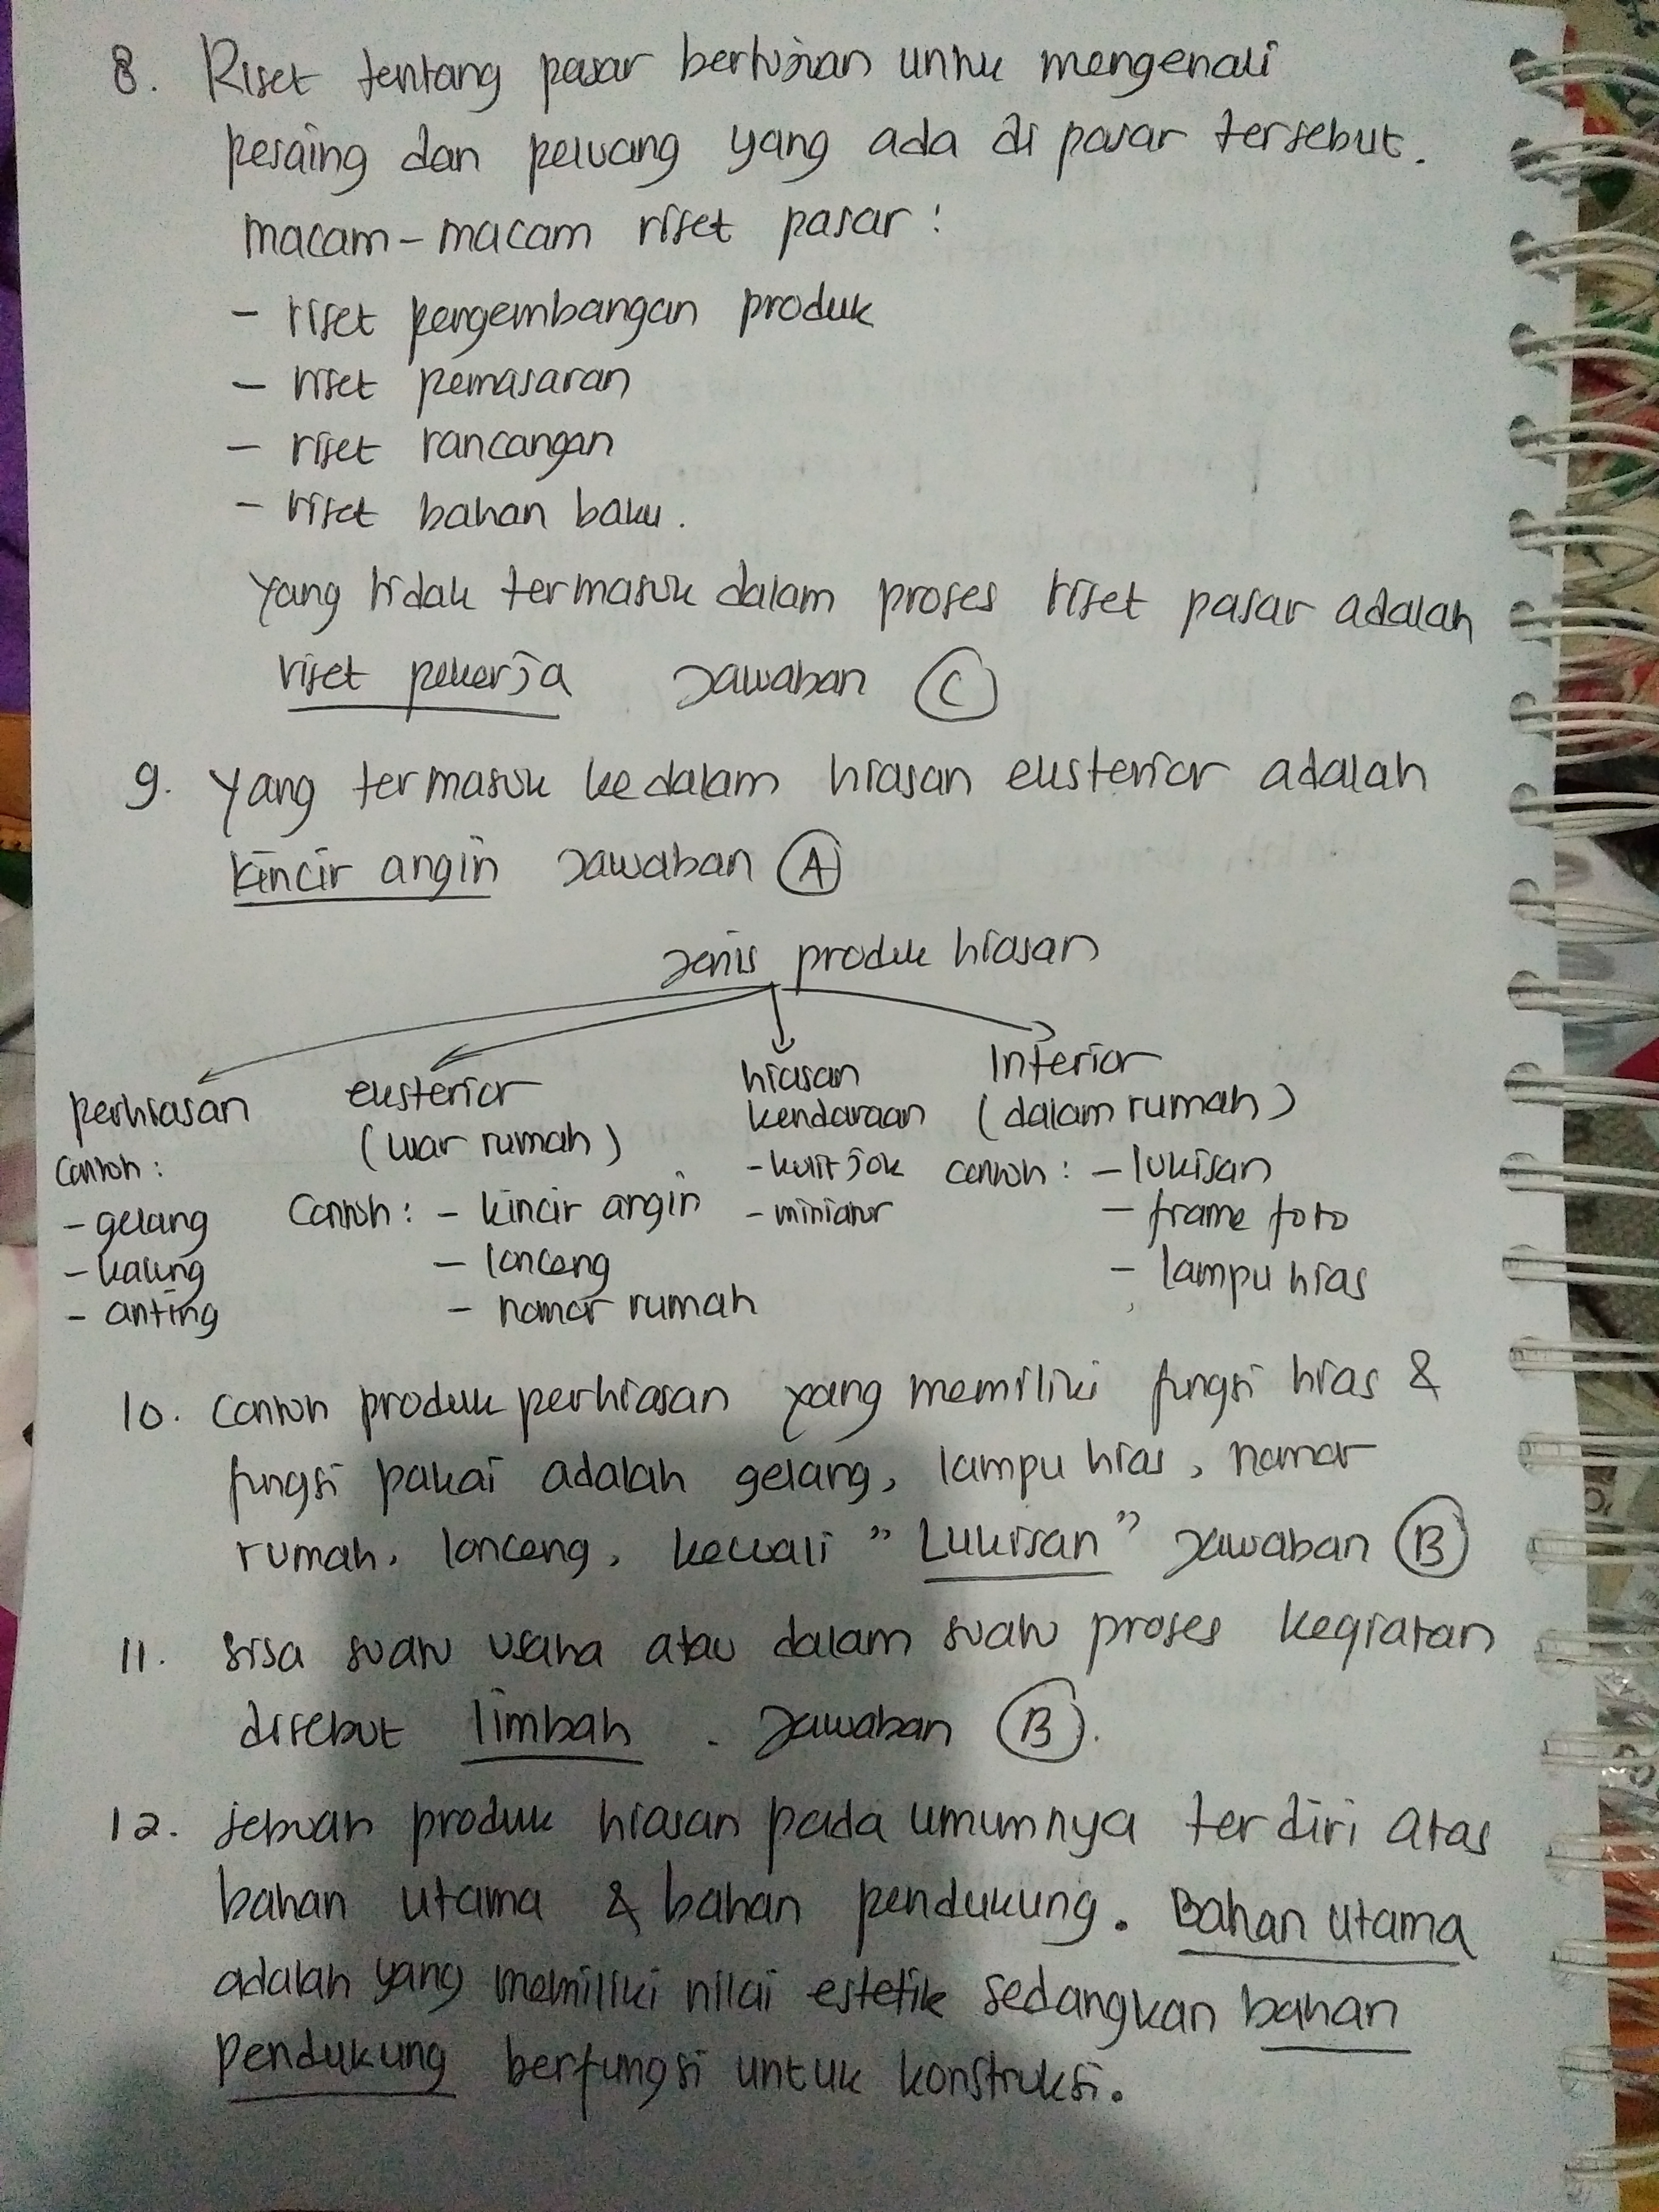 8. Riset tentang pasar bertujuan untuk mengenali
pesaing dan peluang yang ada di pasar tersebut.
macam-macam riset pasar :
- riset pengembangan produk
- riset pemasaran
- riset rancangan
- riset bahan baku.
yang tidak termasuk dalam proses riset pasar adalah
riset pekerja Jawaban C
9. yang termasuk kedalam hiasan eksterior adalah
kincir angin Jawaban A
Jenis produk hiasan
perhiasan
contoh :
- gelang
- kalung
- anting
eksterior
(luar rumah)
Contoh : - kincir angin
- lonceng
- nomor rumah
hiasan
kendaraan
- kulit jok
- miniatur
Interior
(dalam rumah)
contoh : - lukisan
- frame foto
- lampu hias
10. contoh produk perhiasan yang memiliki fungsi hias &
fungsi pakai adalah gelang, lampu hias, nomor
rumah, lonceng, kecuali " Lukisan " Jawaban B
11. sisa suatu usaha atau dalam suatu proses kegiatan
disebut limbah . Jawaban B.
12. sebuah produk hiasan pada umumnya terdiri atas
bahan utama & bahan pendukung. Bahan utama
adalah yang memiliki nilai estetik sedangkan bahan
pendukung berfungsi untuk konstruksi.